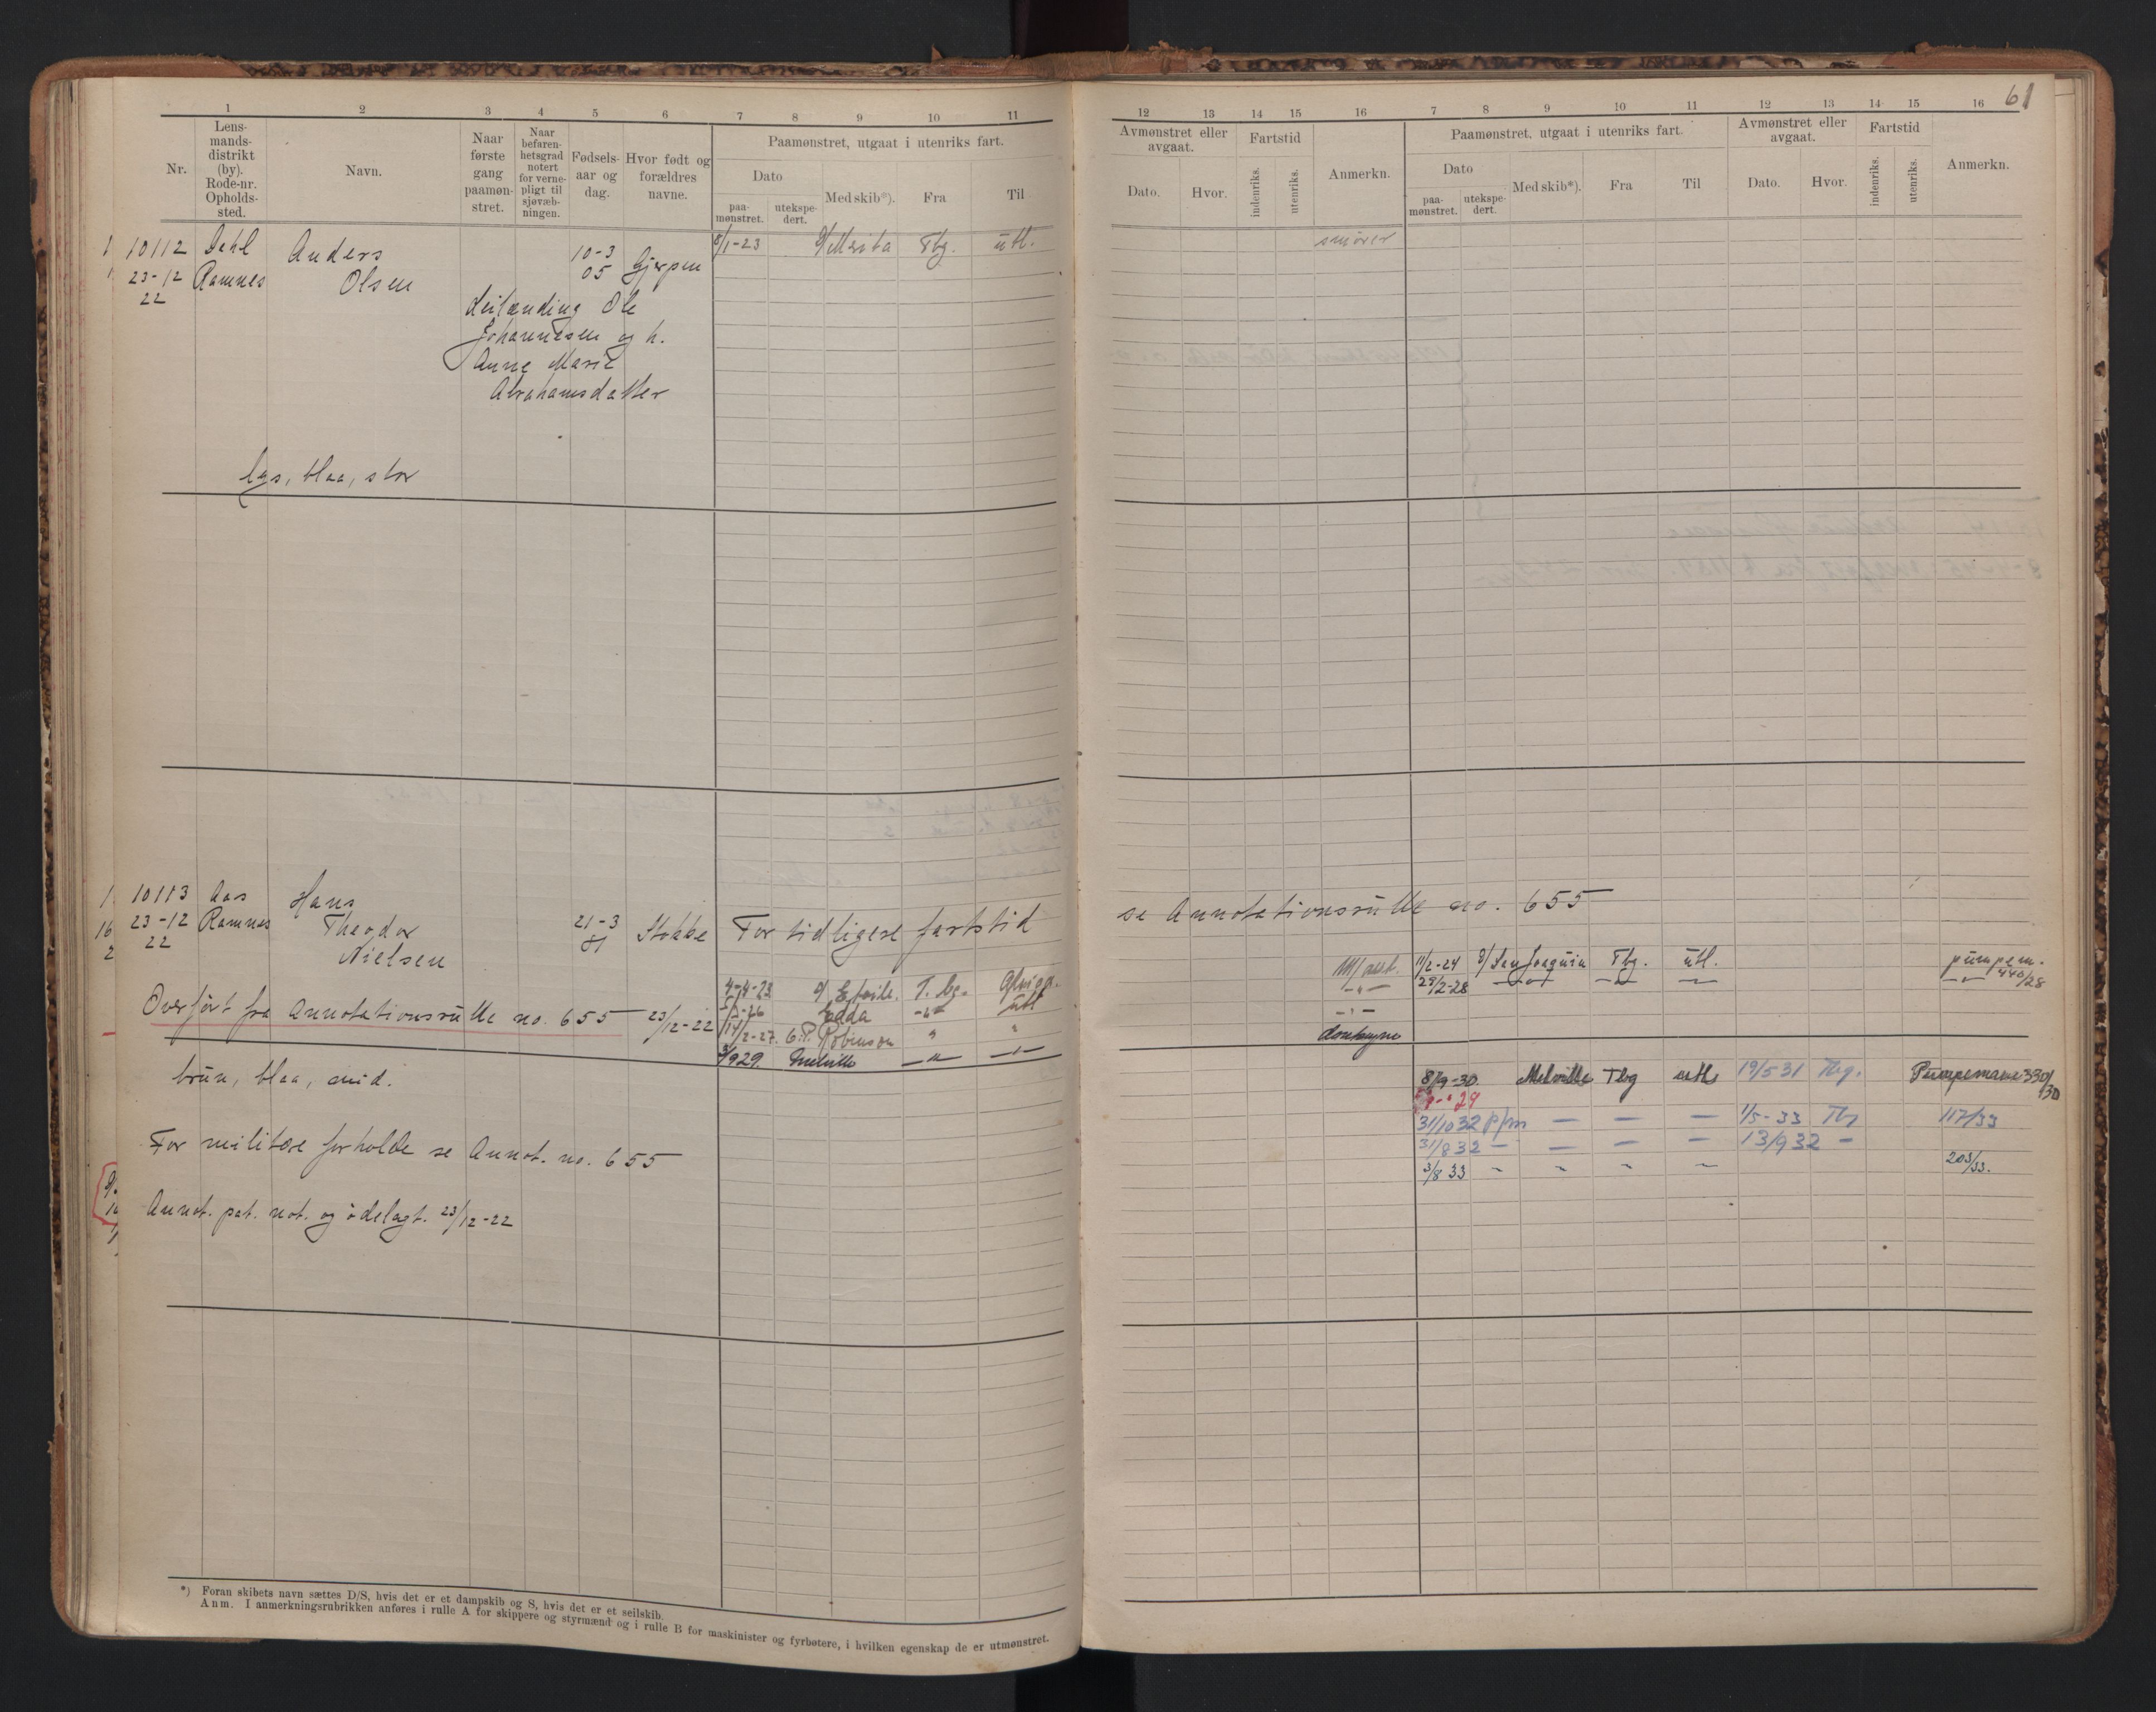 61
1 2 3 4 5 6 7 8 9 10 11
Nr.
Lens-
mands-
distrikt
(by).
Rode-nr.
Opholds-
sted.
Navn.
Naar
første
gang
paamøn-
stret.
Naar
befaren-
hetsgrad
notert
for verne-
pligt til
sjøvæb-
ningen.
Fødsels-
aar og
dag.
Hvor født og
forældres
navne.
Paamønstret, utgaat i utenriks fart.
Dato
paa-
mønstret.
utekspe-
dert.
Med skib*).
Fra
Til
10112 Dehl Anders 10-3 Gjerpen 8/1-23 Merita Tbg. utl.
23-12 Ramnes Olsen 05
22
Leilænding Ole
Johannesen og h.
Anne Marie
Abrahamsdatter
lys, blaa, stor
10113 Aas Hans
23-12 Ramnes Theodor 21-3 Stokke For tidligere fartstid
22 Nielsen 81
4-4-23 T. bg.
Overført fra Annotationsrulle no. 655 23/12-22
Edda -"- utl
14/2-27. Robinson " "
929. Melville -"- -"-
brun, blaa, mid.
For militære forholde se Annot. no. 655
Annot. pat. not. og ødelagt. 23/12-22
*) Foran skibets navn sættes D/S, hvis det er et dampskib og S, hvis det er et seilskib.
Anm. I anmerkningsrubrikken anføres i rulle A for skippere og styrmænd og i rulle B for maskinister og fyrbøtere, i hvilken egenskap de er utmønstret.
12 13 14 15 16 7 8 9 10 11 12 13 14 15 16
Avmønstret eller
avgaat.
Dato.
Hvor.
Fartstid
indenriks.
utenriks.
Anmerkn.
Paamønstret, utgaat i utenriks fart.
Dato
paa-
mønstret.
utekspe-
dert.
Med skib*).
Fra
Til
Avmønstret eller
avgaat.
Dato.
Hvor.
Fartstid
indenriks.
utenriks.
Anmerkn.
smører
se Annotationsrulle no. 655
11/2-24 San Joaquin Tbg. utl. pumpem.
-"- 29/2-28 -"- -"- -"- -"- 440/28
-"-
donkeym
8/9-30. Melville Tbg utl 19/5 31 Tbg. Pumpemann 330/30
29
31/10 32 ppm — — — 1/5-33 Tbg 117/33
31/8 32 — — — — 13/9 32 —
3/8 33 " " " " 203/33.